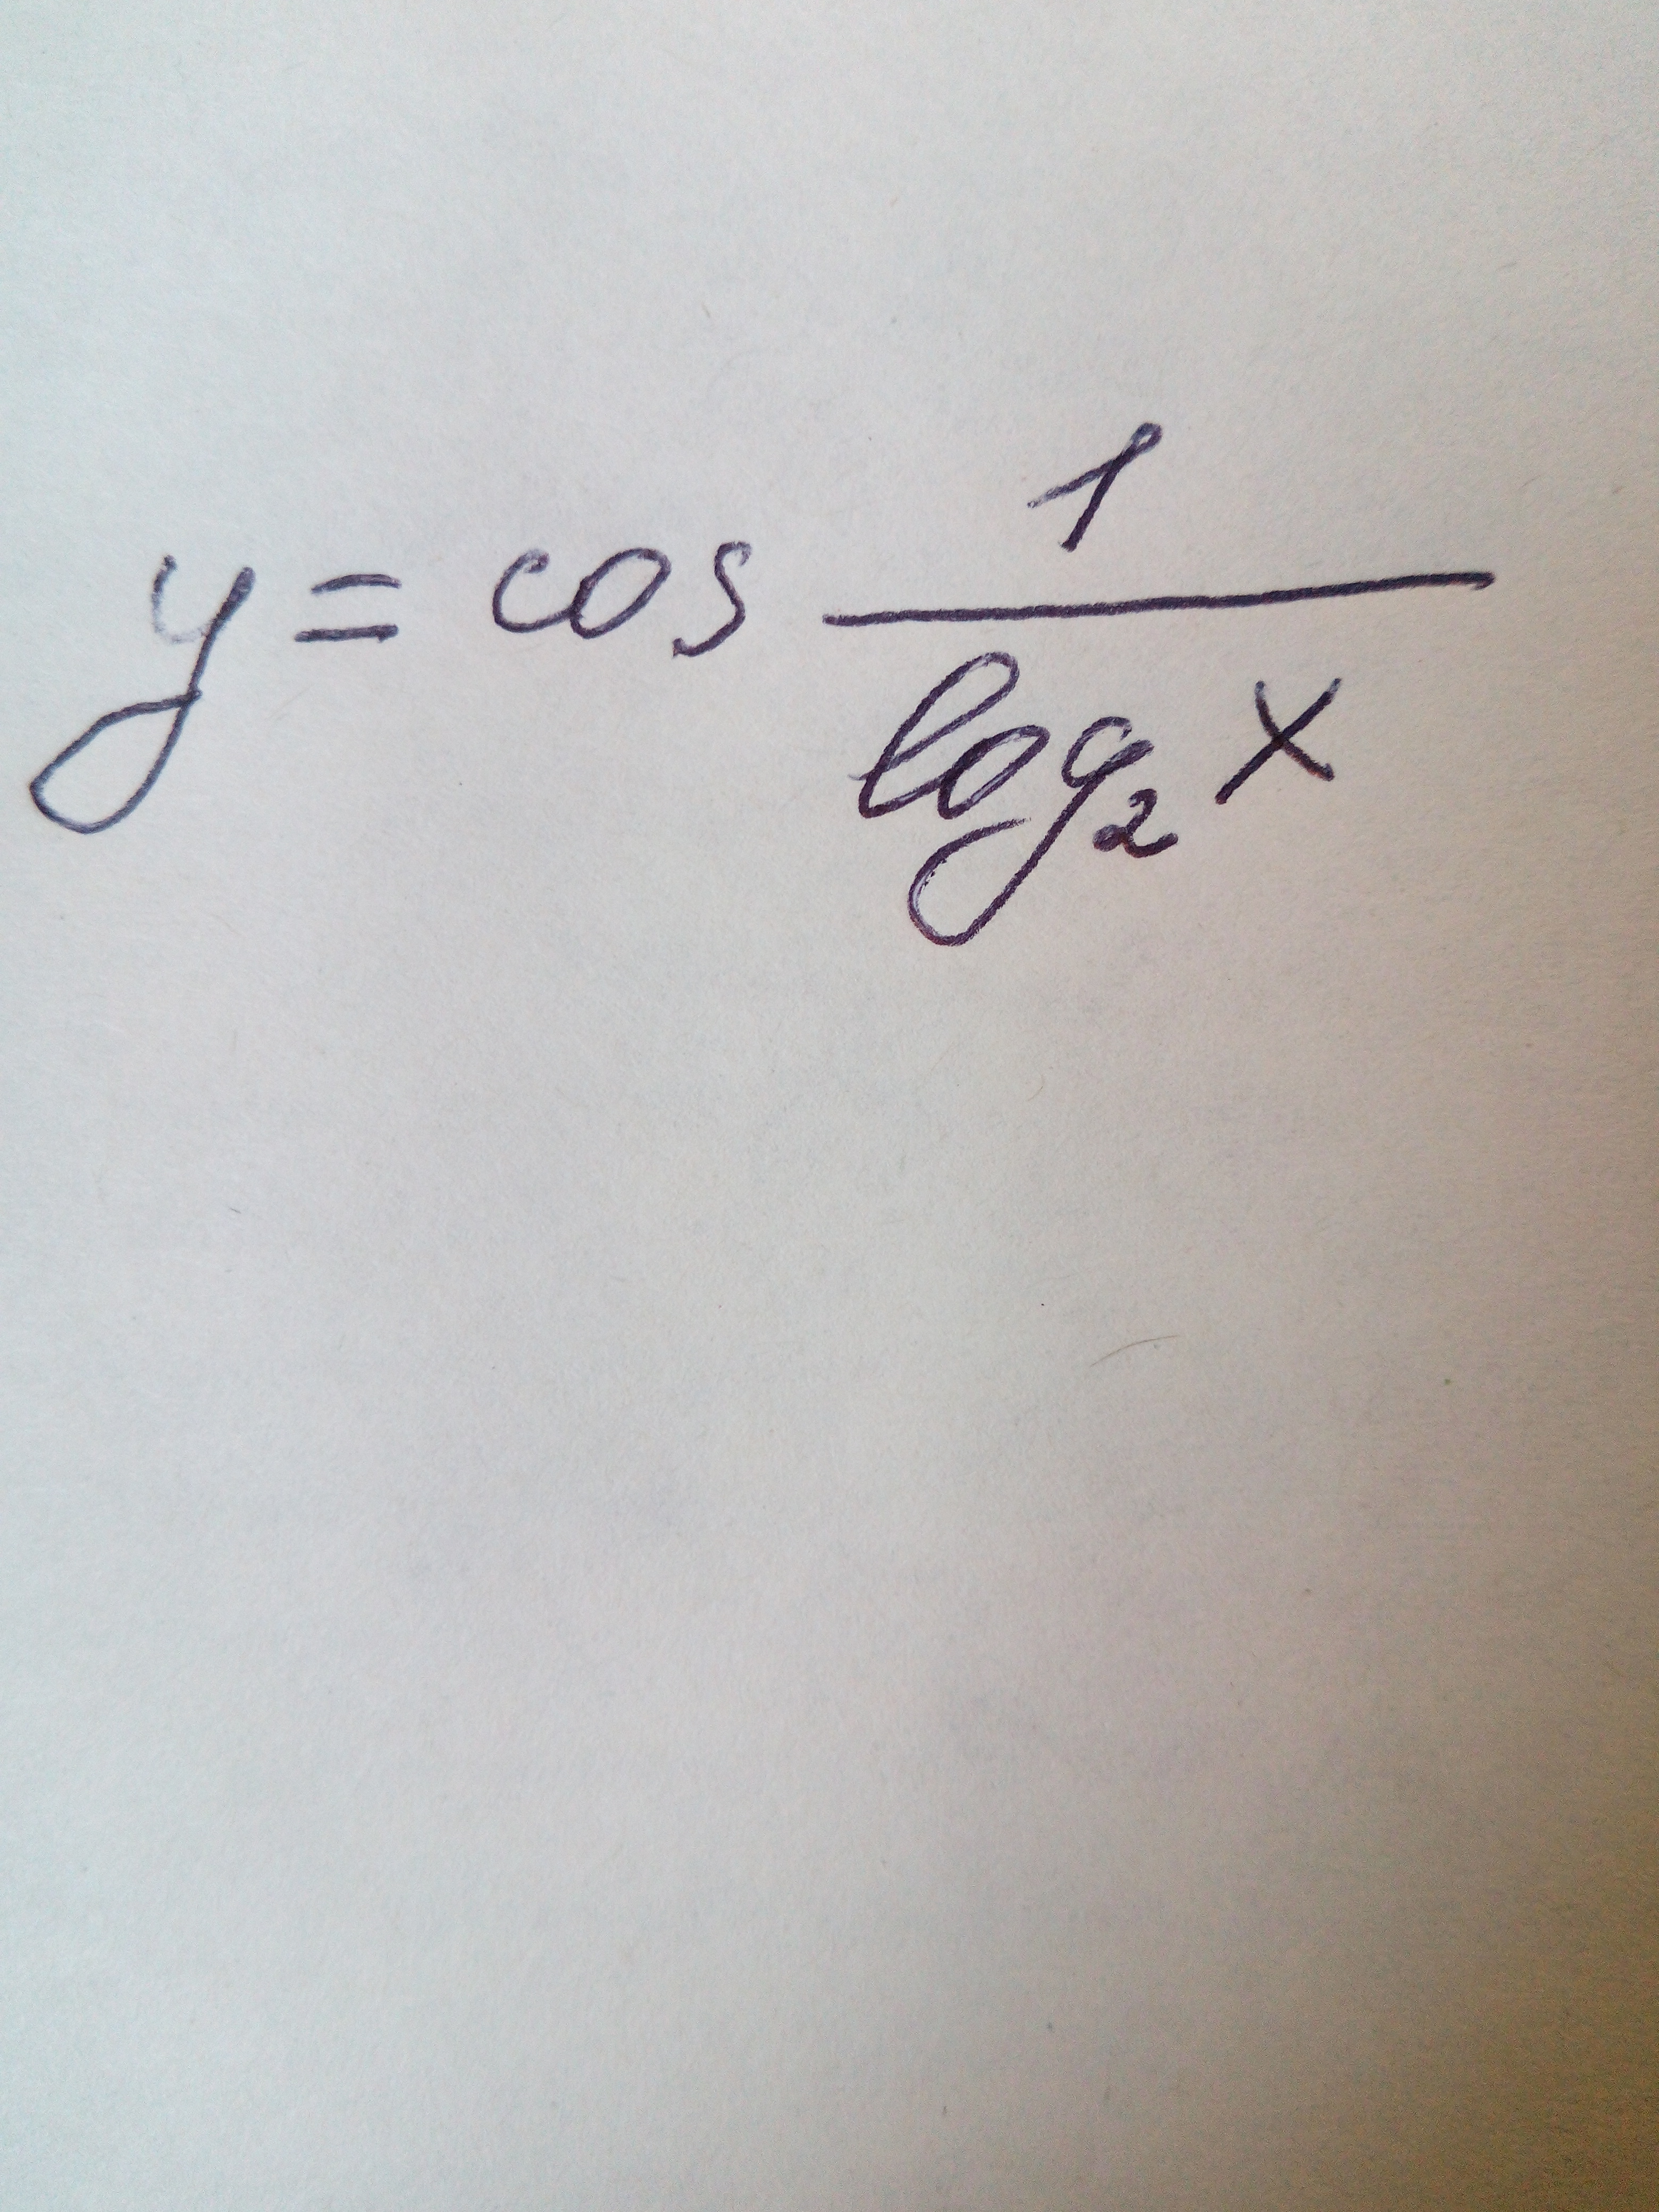 y = cos 1/log₂ x